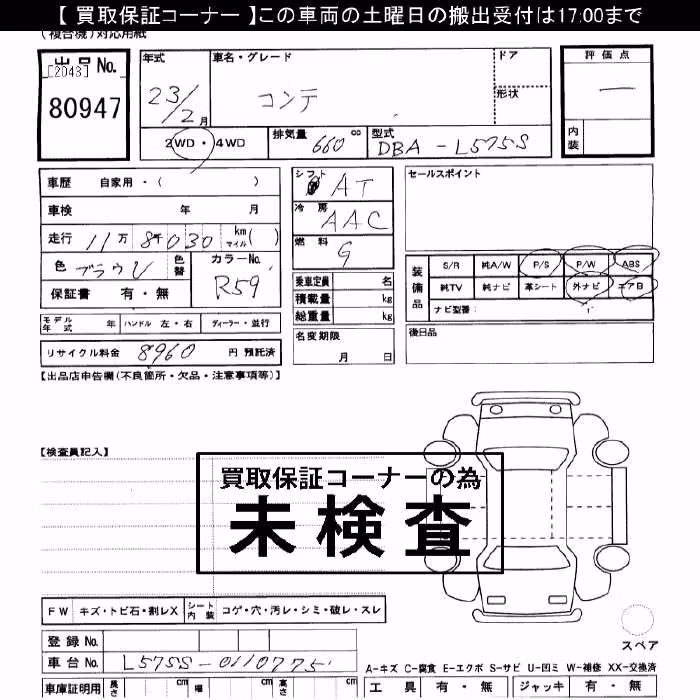 【 買取保証コーナー 】この車両の土曜日の搬出受付は17:00まで
(複合機)対応用紙
出品 No. [2043]
80947
年式 23/2 月
車名・グレード コンテ
ドア
形状
評価点 —
内装
2WD・4WD
排気量 660 cc
型式 DBA-L575S
車歴 自家用・( )
車検 年 月
走行 11万 8千030 km マイル( )
色 ブラウン 色替
カラーNo. R59
保証書 有・無
シフト AT
冷房 AAC
燃料 G
乗車定員 名
積載量 kg
総重量 kg
名変期限 月 日
セールスポイント
装備品
S/R 純A/W P/S P/W ABS
純TV 純ナビ 革シート 外ナビ エアB
ナビ型番:
後日品
モデル年式 年 ハンドル 左・右 ディーラー・並行
リサイクル料金 8960 円 預託済
【出品店申告欄(不良箇所・欠品・注意事項等)】
【検査員記入】
買取保証コーナーの為
未検査
FW キズ・トビ石・割レX シート内装 コゲ・穴・汚レ・シミ・破レ・スレ
登録 No.
車台 No. L575S-0110775
車庫証明用 長さ cm 幅 cm 高さ cm
スペア
A-キズ C-腐食 E-エクボ S-サビ U-凹ミ W-補修 XX-交換済
工具 有・無 ジャッキ 有・無